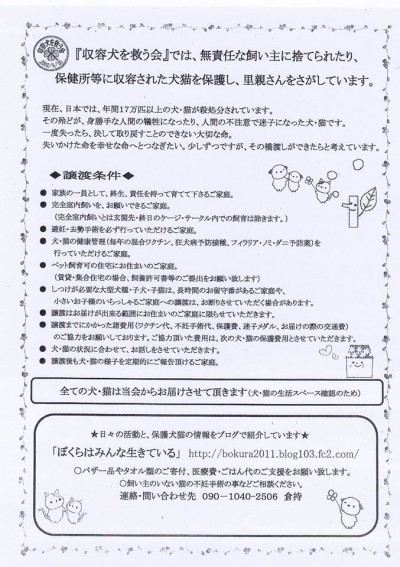 収容犬を救う会
『収容犬を救う会』では、無責任な飼い主に捨てられたり、
保健所等に収容された犬猫を保護し、里親さんをさがしています。
現在、日本では、年間17万匹以上の犬・猫が殺処分されています。
その殆どが、身勝手な人間の犠牲になったり、人間の不注意で迷子になった犬・猫です。
一度失ったら、決して取り戻すことのできない大切な命。
失いかけた命を幸せな命へとつなぎたい。少しずつですが、その橋渡しができたらと考えています。
◆譲渡条件◆
● 家族の一員として、終生、責任を持って育てて下さるご家庭。
● 完全室内飼いを、お願いできるご家庭。
（完全室内飼いとは玄関先・終日のケージ・サークル内での飼育は除きます。）
● 避妊・去勢手術を必ず行っていただけるご家庭。
● 犬・猫の健康管理（毎年の混合ワクチン、狂犬病予防接種、フィラリア・ノミ・ダニ予防薬）を
行っていただけるご家庭。
● ペット飼育可の住宅にお住まいのご家庭。
（賃貸・集合住宅の場合、飼養許可書等のご提出をお願い致します）
● しつけが必要な大型犬種・子犬・子猫は、長時間のお留守番があるご家庭や、
小さいお子様のいらっしゃるご家庭への譲渡は、お断りさせていただく場合があります。
● 譲渡はお届けが出来る範囲にお住まいのご家庭に限らせていただきます。
● 譲渡までにかかった諸費用（ワクチン代、不妊手術代、保護費、迷子メダル、お届けの際の交通費）
のご協力をお願いしております。ご協力頂いた費用は、次の犬・猫の保護費用とさせていただきます。
● 犬・猫の状況に合わせて、お話しをさせていただきます。
● 譲渡後も犬・猫の様子を定期的にご報告頂けるご家庭。
全ての犬・猫は当会からお届けさせて頂きます（犬・猫の生活スペース確認のため）
★日々の活動と、保護犬猫の情報をブログで紹介しています★
「ぼくらはみんな生きている」 http://bokura2011.blog103.fc2.com/
○バザー品やタオル類のご寄付、医療費・ごはん代のご支援をお願い致します。
○飼い主のいない猫の不妊手術の事などご相談ください。
連絡・問い合わせ先 090－1040-2506 倉持